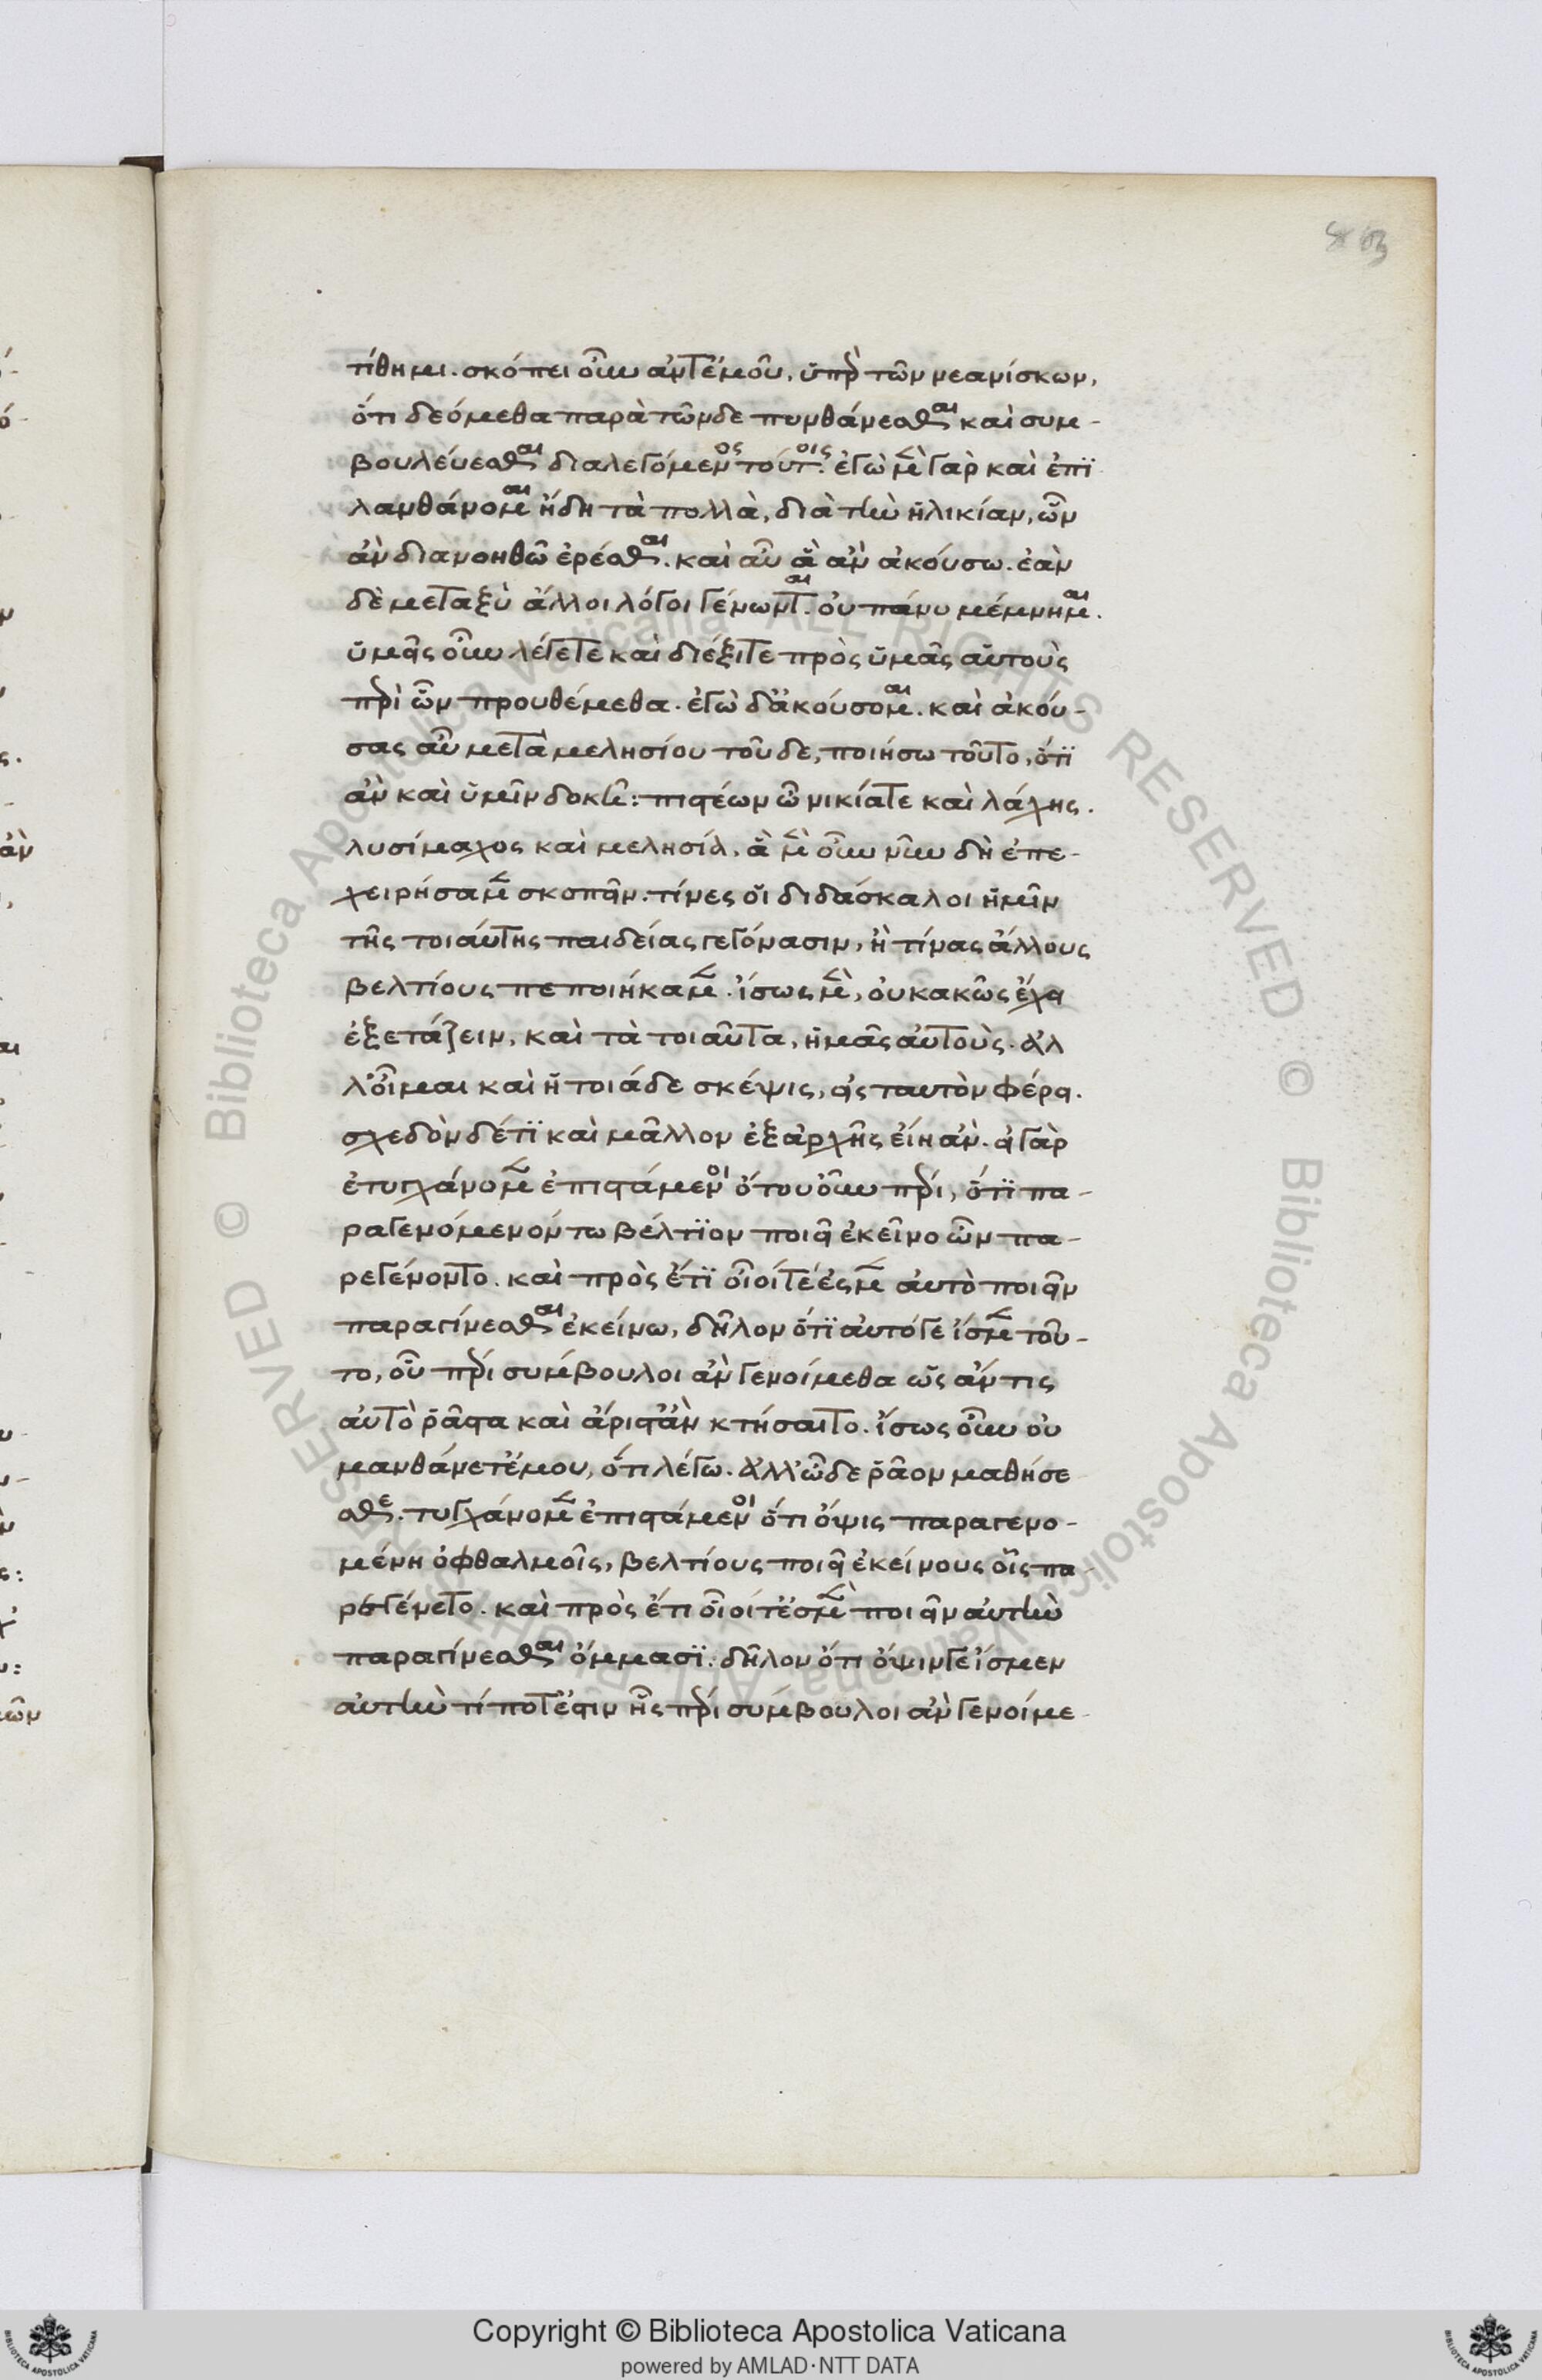 τίθημι. σκόπει οὖν ἀντ' ἐμοῦ, ὑπὲρ τῶν νεανίσκων,
ὅτι δεόμεθα παρὰ τῶνδε πυνθάνεσθαι καὶ συμ-
βουλεύεσθαι διαλεγόμενος τούτοις. ἐγὼ μὲν γὰρ καὶ ἐπι
λανθάνομαι ἤδη τὰ πολλὰ, διὰ τὴν ἡλικίαν, ὧν
ἂν διανοηθῶ ἐρέσθαι. καὶ αὖ ἃ ἂν ἀκούσω. ἐὰν
δὲ μεταξὺ ἄλλοι λόγοι γένωνται. οὐ πάνυ μέμνημαι.
ὑμεῖς οὖν λέγετε καὶ διέξιτε πρὸς ὑμᾶς αὑτοὺς
περὶ ὧν προυθέμεθα. ἐγὼ δ' ἀκούσομαι. καὶ ἀκού-
σας αὖ μετὰ μελησίου τοῦδε, ποιήσω τοῦτο, ὅτι
ἂν καὶ ὑμῖν δοκῆ: πιστέων ὦ νικίατε καὶ λάχης.
λυσίμαχος καὶ μελησία. ἃ μὲν οὖν νῦν δὴ ἐπε-
χειρήσαμεν σκοπεῖν. τίνες οἱ διδάσκαλοι ἡμῖν
τῆς τοιαύτης παιδείας γεγόνασιν, ἢ τίνας ἄλλους
βελτίους πεποιήκαμεν. ἴσως μὲν, οὐ κακῶς ἔχει
ἐξετάζειν, καὶ τὰ τοιαῦτα, ἡμᾶς αὐτούς. ἀλ
λ' οἶμαι καὶ ἡ τοιάδε σκέψις, εἰς ταυτὸν φέρει.
σχεδὸν δέ τι καὶ μᾶλλον ἐξ ἀρχῆς εἴη ἄν. εἰ γὰρ
ἐτυγχάνομεν ἐπιστάμενοι ὅτου οὖν περι, ὅτι πα-
ραγενόμενόν τω βέλτιον ποιεῖ ἐκεῖνο ὧν πα-
ρεγένοντο. καὶ πρὸς ἔτι οἷοί τέ ἐσμεν αὐτὸ ποιεῖν
παραγίνεσθαι ἐκείνω, δῆλον ὅτι αὐτό γε ἴσμεν τοῦ-
το, οὗ περι σύμβουλοι ἂν γενοίμεθα ὡς ἄν τις
αὐτὸ ῥᾶστα καὶ ἄριστ' ἂν κτήσαιτο. ἴσως οὖν οὐ
μανθάνετέ μου, ὅτι λέγω. ἀλλ' ὧδε ῥᾶον μαθήσε
σθε. τυγχάνομεν ἐπιστάμενοι ὅτι ὄψις παραγενο-
μένη ὀφθαλμοῖς, βελτίους ποιεῖ ἐκείνους οἷς πα
ρεγένετο. καὶ πρὸς ἔτι οἷοί τ' ἐσμὲν ποιεῖν αὐτὴν
παραγίνεσθαι ὄμμασι. δῆλον ὅτι ὄψιν γε ἴσμεν
αὐτὴν τί ποτ' ἔστιν ἧς περι σύμβουλοι ἂν γενοίμε
Copyright © Biblioteca Apostolica Vaticana
powered by AMLAD·NTT DATA